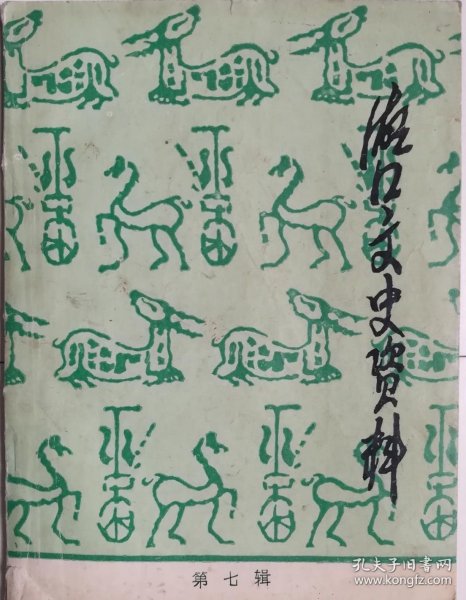 渡口文史资料
第七辑
孔夫子旧书网
www.kongfz.com